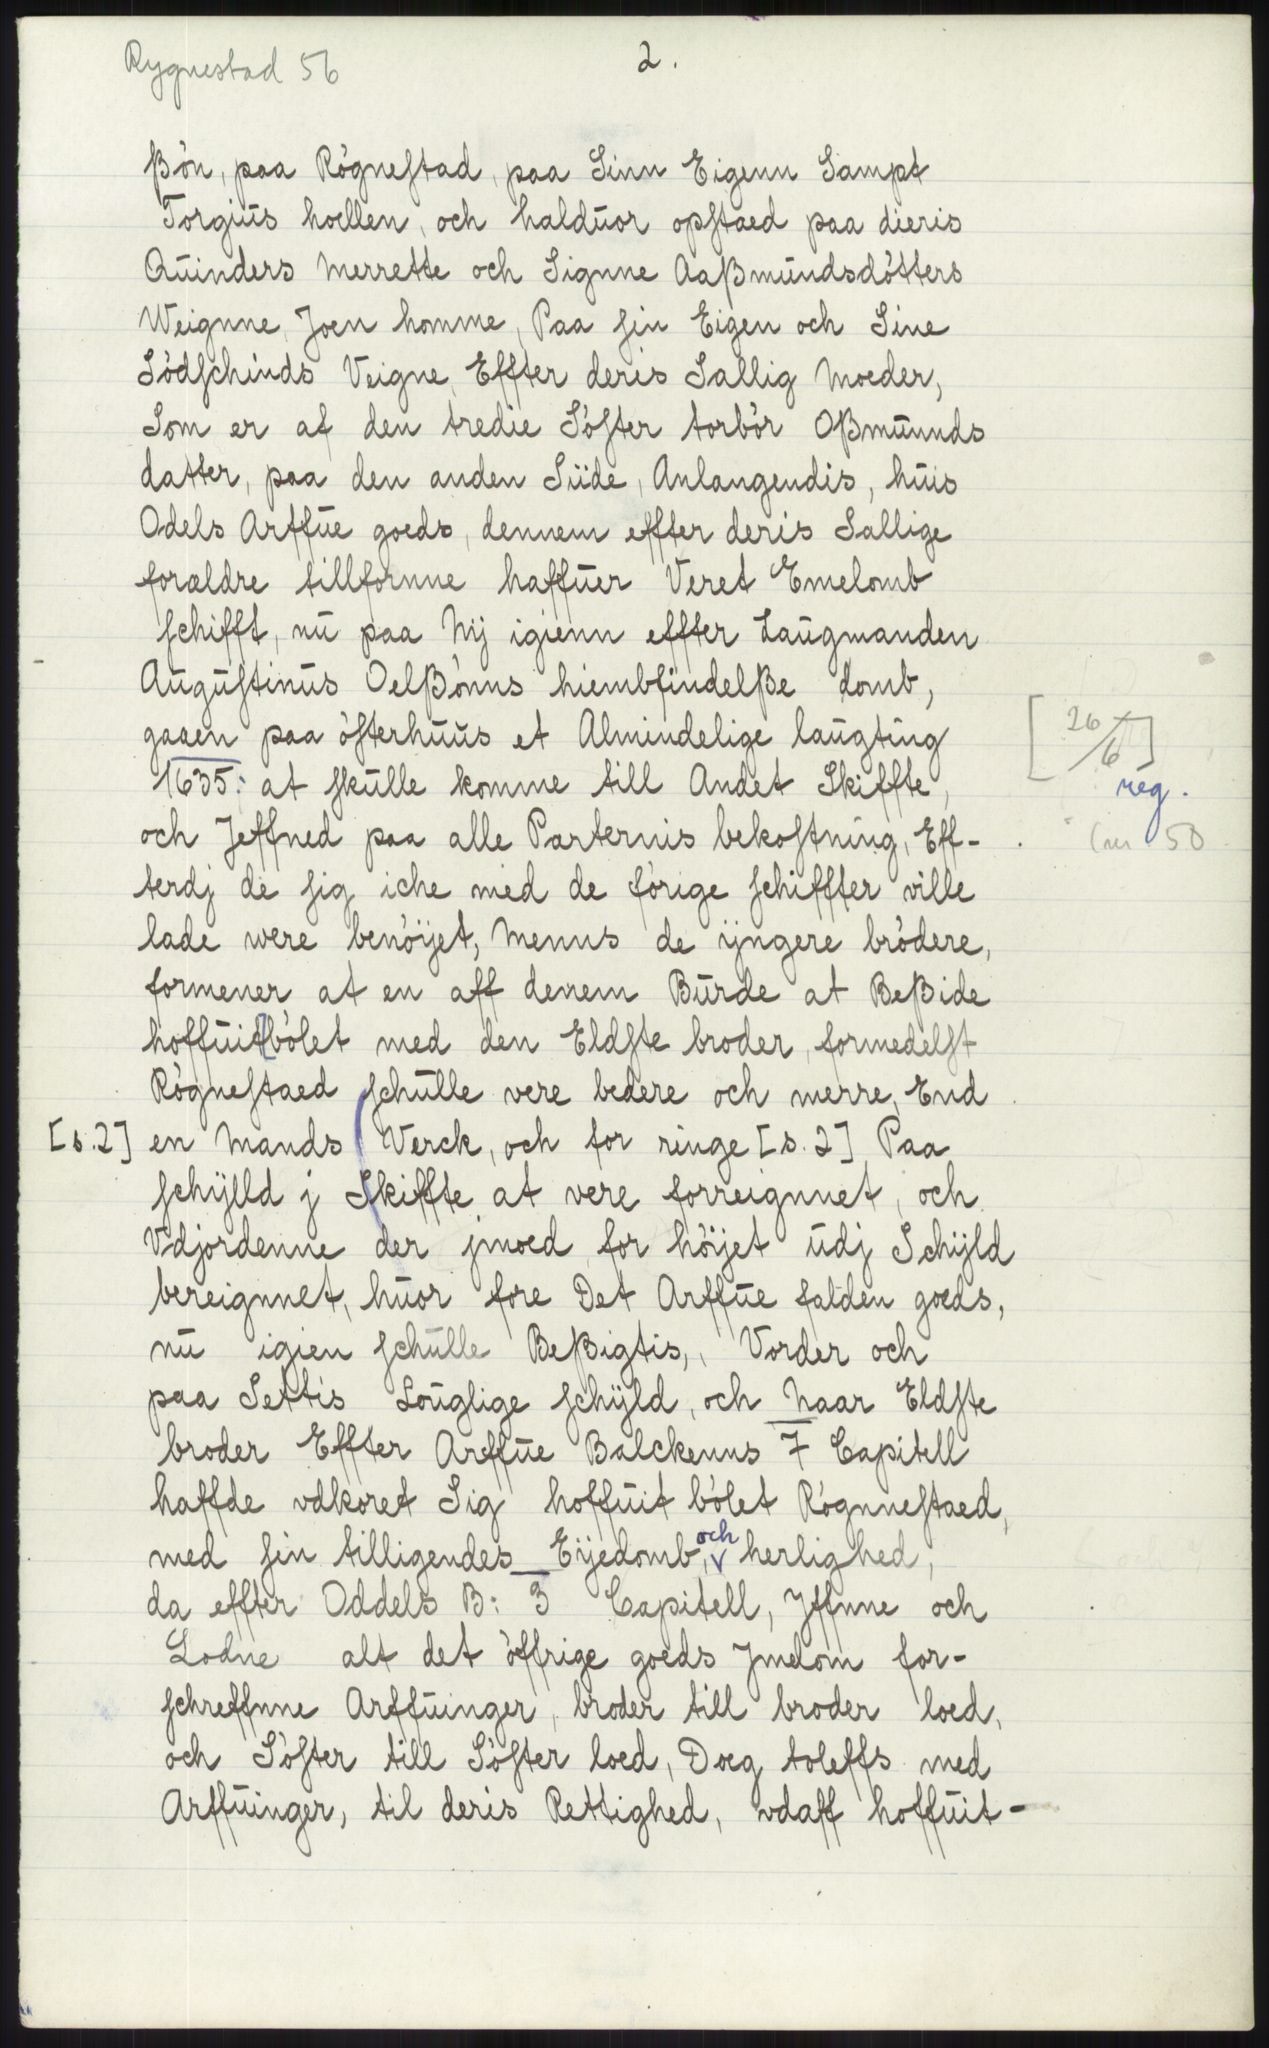 Rygnestad 56
2.
ßòn, paa Rògnestad, paa Sinn Eigenn Sampt
Torgiŭs hoellen, och haldŭor opstaed paa dieris
Qŭinders Merrette och Signne Aaßmŭndsdòtters
Weignne, Joen homme, Paa sin Eigen och Sine
Sòdschinds Veigne, Effter deris Sallig Moeder,
Som er af den tredie Sòster torbòr Oßmŭnnds
datter, paa den anden Siide, Anlangendis, hŭis
Odels Arffŭe goeds, dennem effter deris Sallige
forældre tillfornne haffŭer Veret Emelomb
schifft, nŭ paa Nij igienn effter Laŭgmanden
Aŭgŭstinŭs Oelßònns hiembfindelße domb,
gaaen paa òsterhŭŭs et Almindelige laŭgting
1635: at skŭlle komme till Andet Skiffte,
[26/6]
reg.
och Jeffned paa alle Parternis bekostning, Eff-
(nr 50
terdj de sig iche med de fòrige schiffter ville
lade were benòijet, Menns de ijngere bròdere,
formener at en aff denem Bŭrde at Beßide
hoffŭit[bòlet med den Eldste broder, formedelst
Rògnestaed schŭlle vere bedere och merre, End
[s.2] en Mands Verck, och for ringe [s. 2] Paa
schijlld j Skiffte at vere forreignnet, och
Vdjordenne der jmoed for hòijet ŭdj Schijld
bereignnet, hŭor fore Det Arffŭe falden goeds,
nŭ igien schŭlle Beßigtis, Vorder och
paa Settis Loŭglige schijld, och Naar Eldste
broder Effter Arffŭe Balckenns 7 Capitell
haffde vdkoret Sig hoffŭit bòlet Rògnnestaed,
med sin tilligendes Eijedomb, och herlighed,
da effter Oddels B: 3 Capitell, Jffnne och
Lodne alt det òffrige goeds Jmelom for-
schreffnne Arffŭinger, broder till broder loed,
och Sòster till Sòster loed, Doeg toleffs med
Arffŭinger, til deris Rettighed, vdaff hoffŭit-